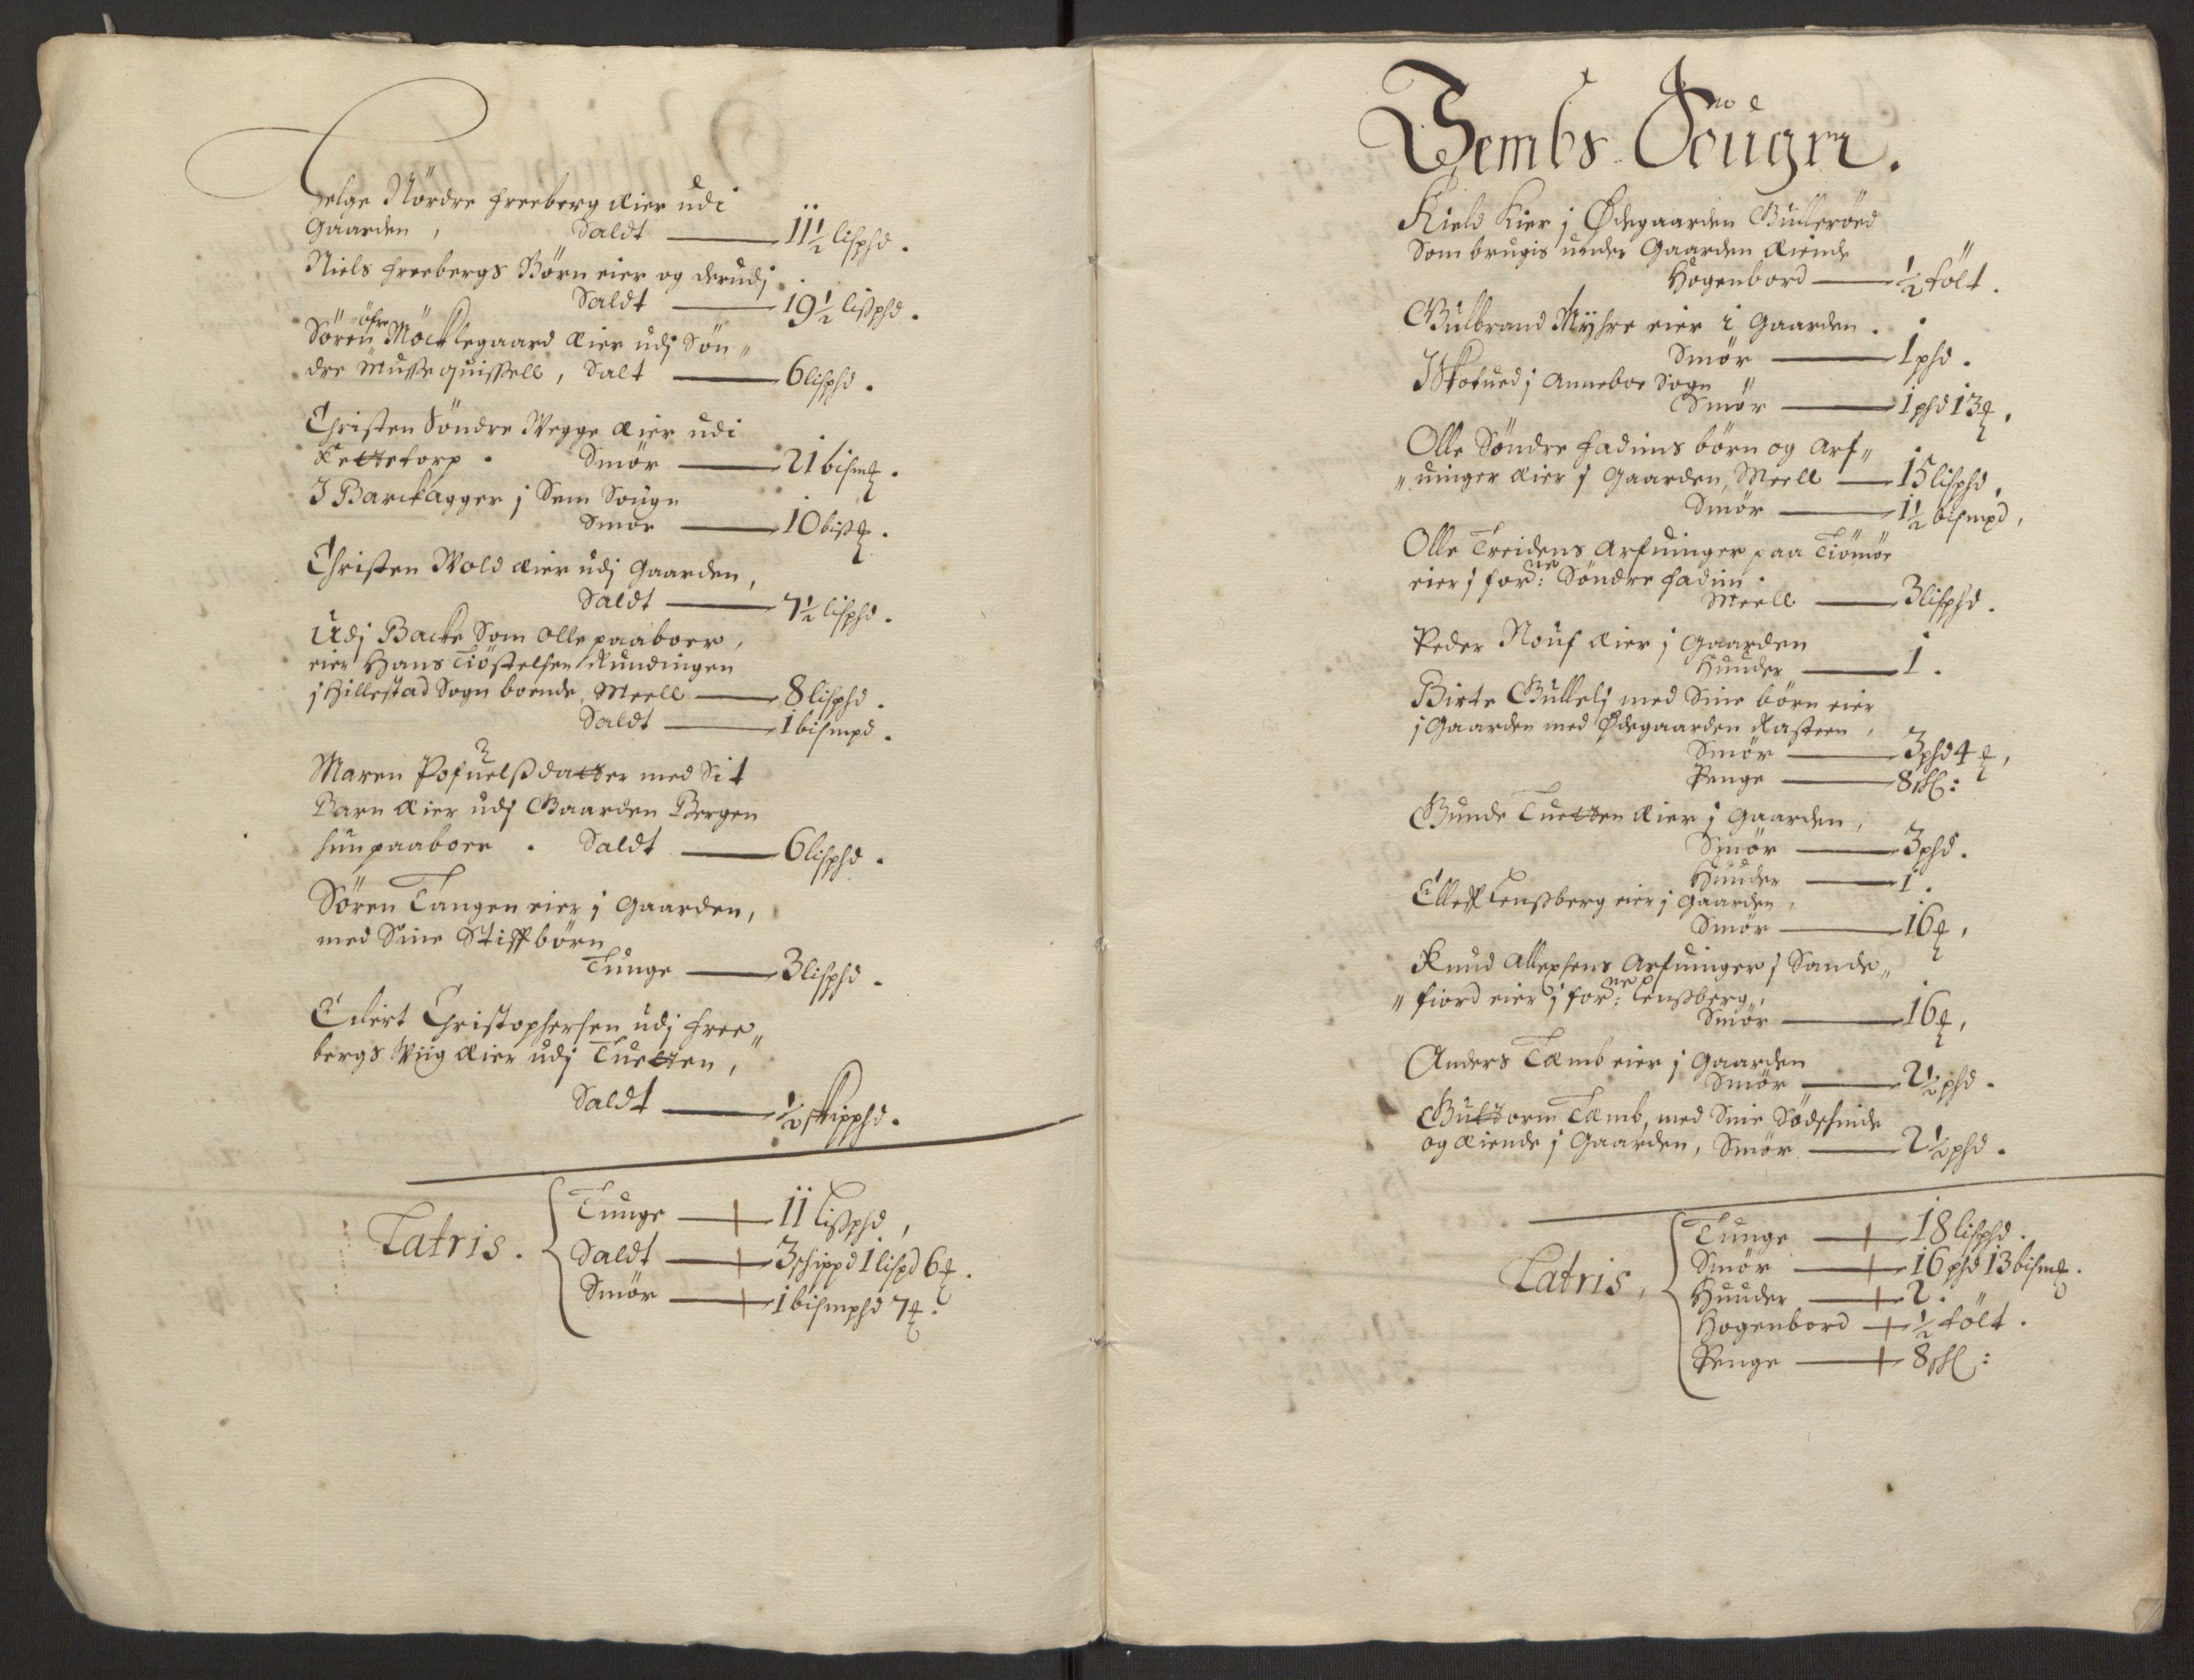 Helge Nördre Freeberg Eier udi
Gaarden, Saldt — 11½ lispd.
Niels Freebergs Börn eier og derudj
Saldt — 19½ lispd.
Sören öfre Möcklegaard Eier udj Sön„
dre Mussequissell, Salt — 6 lispd.
Christen Söndre Wegge Eier udi
Kettetorp. Smör — 21 bismꝣ.
J Barckagger j Sem Sougn
Smör — 10 bisꝣ.
Christen Wold Eier udj Gaarden,
Saldt — 7½ lispd.
Udj Backe Som Olle paaboer,
eier Hans Tiöstelsen Rundingen
j Hillestad Sogn boende, Meell — 8 lispd.
Saldt — 1 bismpd.
Maren Pofuelsdatter med Sit
Barn Eier udj Gaarden Bergen
hun paaboer. Saldt — 6 lispd.
Sören Tangen eier j Gaarden,
med Sine Stiffbörn
Tunge — 3 lispd.
Eilert Christophersen udj Free„
bergs Wiig Eier udj Tuetten,
Saldt — ½ skippd.
Latris.
Tunge — 11 Lispd,
Saldt — 3 schippd 1 lispd 6 ꝣ.
Smör — 1 bismpd 7 ꝣ.
Sembs Sougn.
Kield Kier j Ødegaarden Bulleröed
Som brugis under Gaarden Eiende
Hogenbord — ½ tölt.
Gulbrand Myhre eier i Gaarden.
Smör — 1 pd.
J Skotued j Anneboe Sogn
Smör — 1 pd 13 ꝣ,
Olle Söndre Fadums börn og Arf„
„uinger Eier j Gaarden, Meell — 15 lispd,
Smör — 1½ bismpd,
Olle Treidens Arfuinger paa Tiömöe
eier j forne: Söndre Fadum.
Meell — 3 lispd.
Peder Nouf Eier j Gaarden
Huuder — 1.
Birte Gullelj med Sine börn eier
j Gaarden med Ødegaarden Rasteen,
Smör — 3 pd 4 ꝣ,
Penge — 8 sk:
Gunde Tuetten Eier j Gaarden,
Smör — 3 pd.
Huuder — 1.
Elleff Lensberg eier j Gaarden,
Smör — 16 ꝣ,
Knud Allexsens Arfuinger j Sande„
„fiord eier j forne: Lensberg,
Smör — 16 ꝣ,
Anders Tæmb eier j Gaarden
Smör — 2½ pd.
Guttorm Tæmb, med Sine Södschinde
og Eiende j Gaarden, Smör — 2½ pd.
Latris,
Tunge — 18 lispd.
Smör — 16 pd 13 bismꝣ.
Huuder — 2.
Hogenbord — ½ tölt.
Penge — 8 sk: